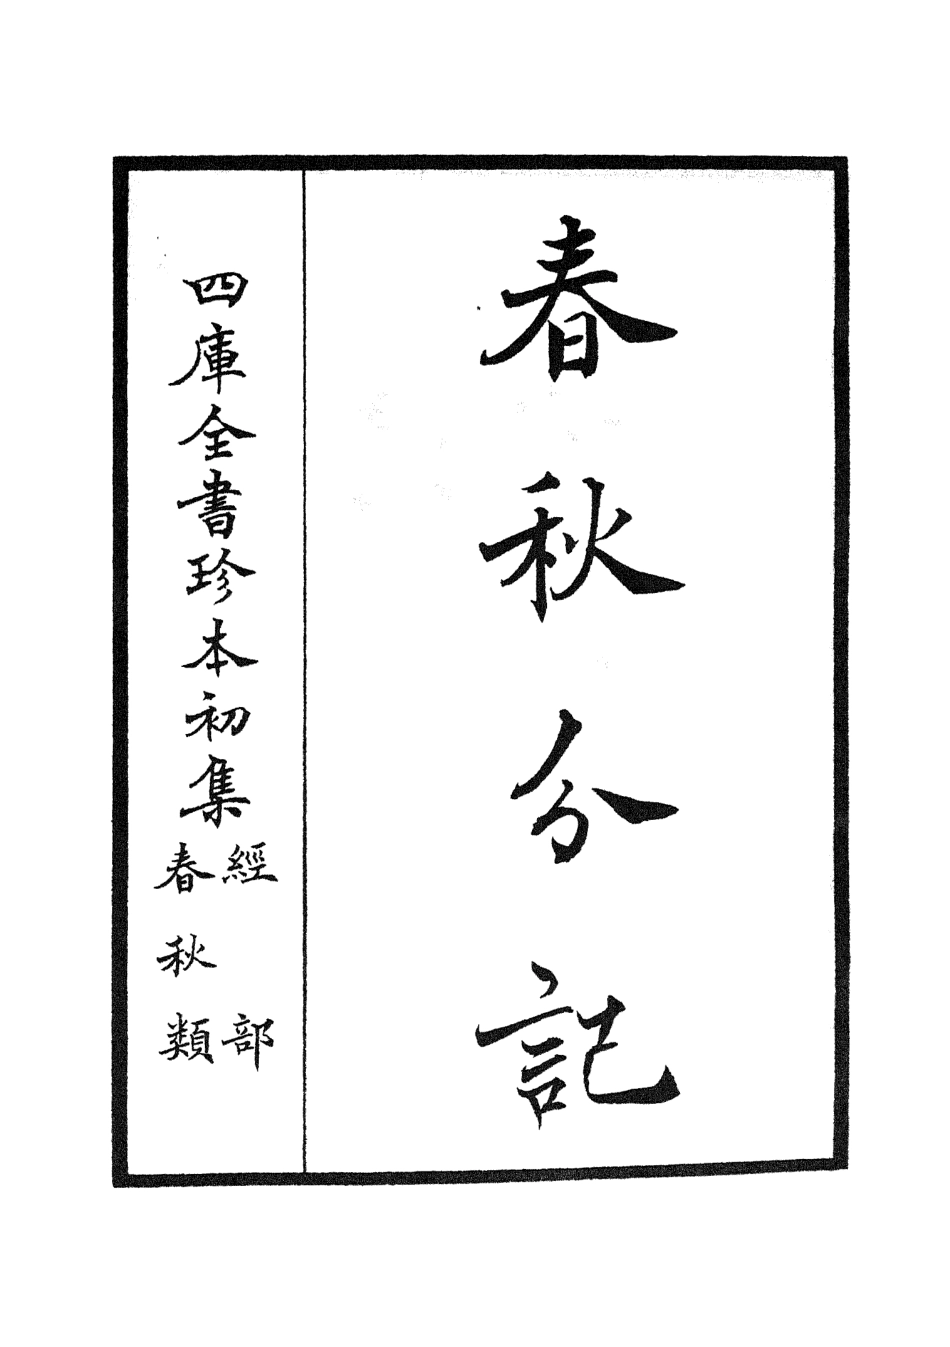 春秋分記
四庫全書珍本初集
經部
春秋類